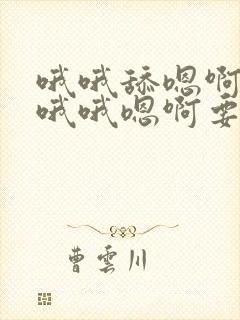 哦哦舔嗯啊
哦哦嗯啊要
曹云川